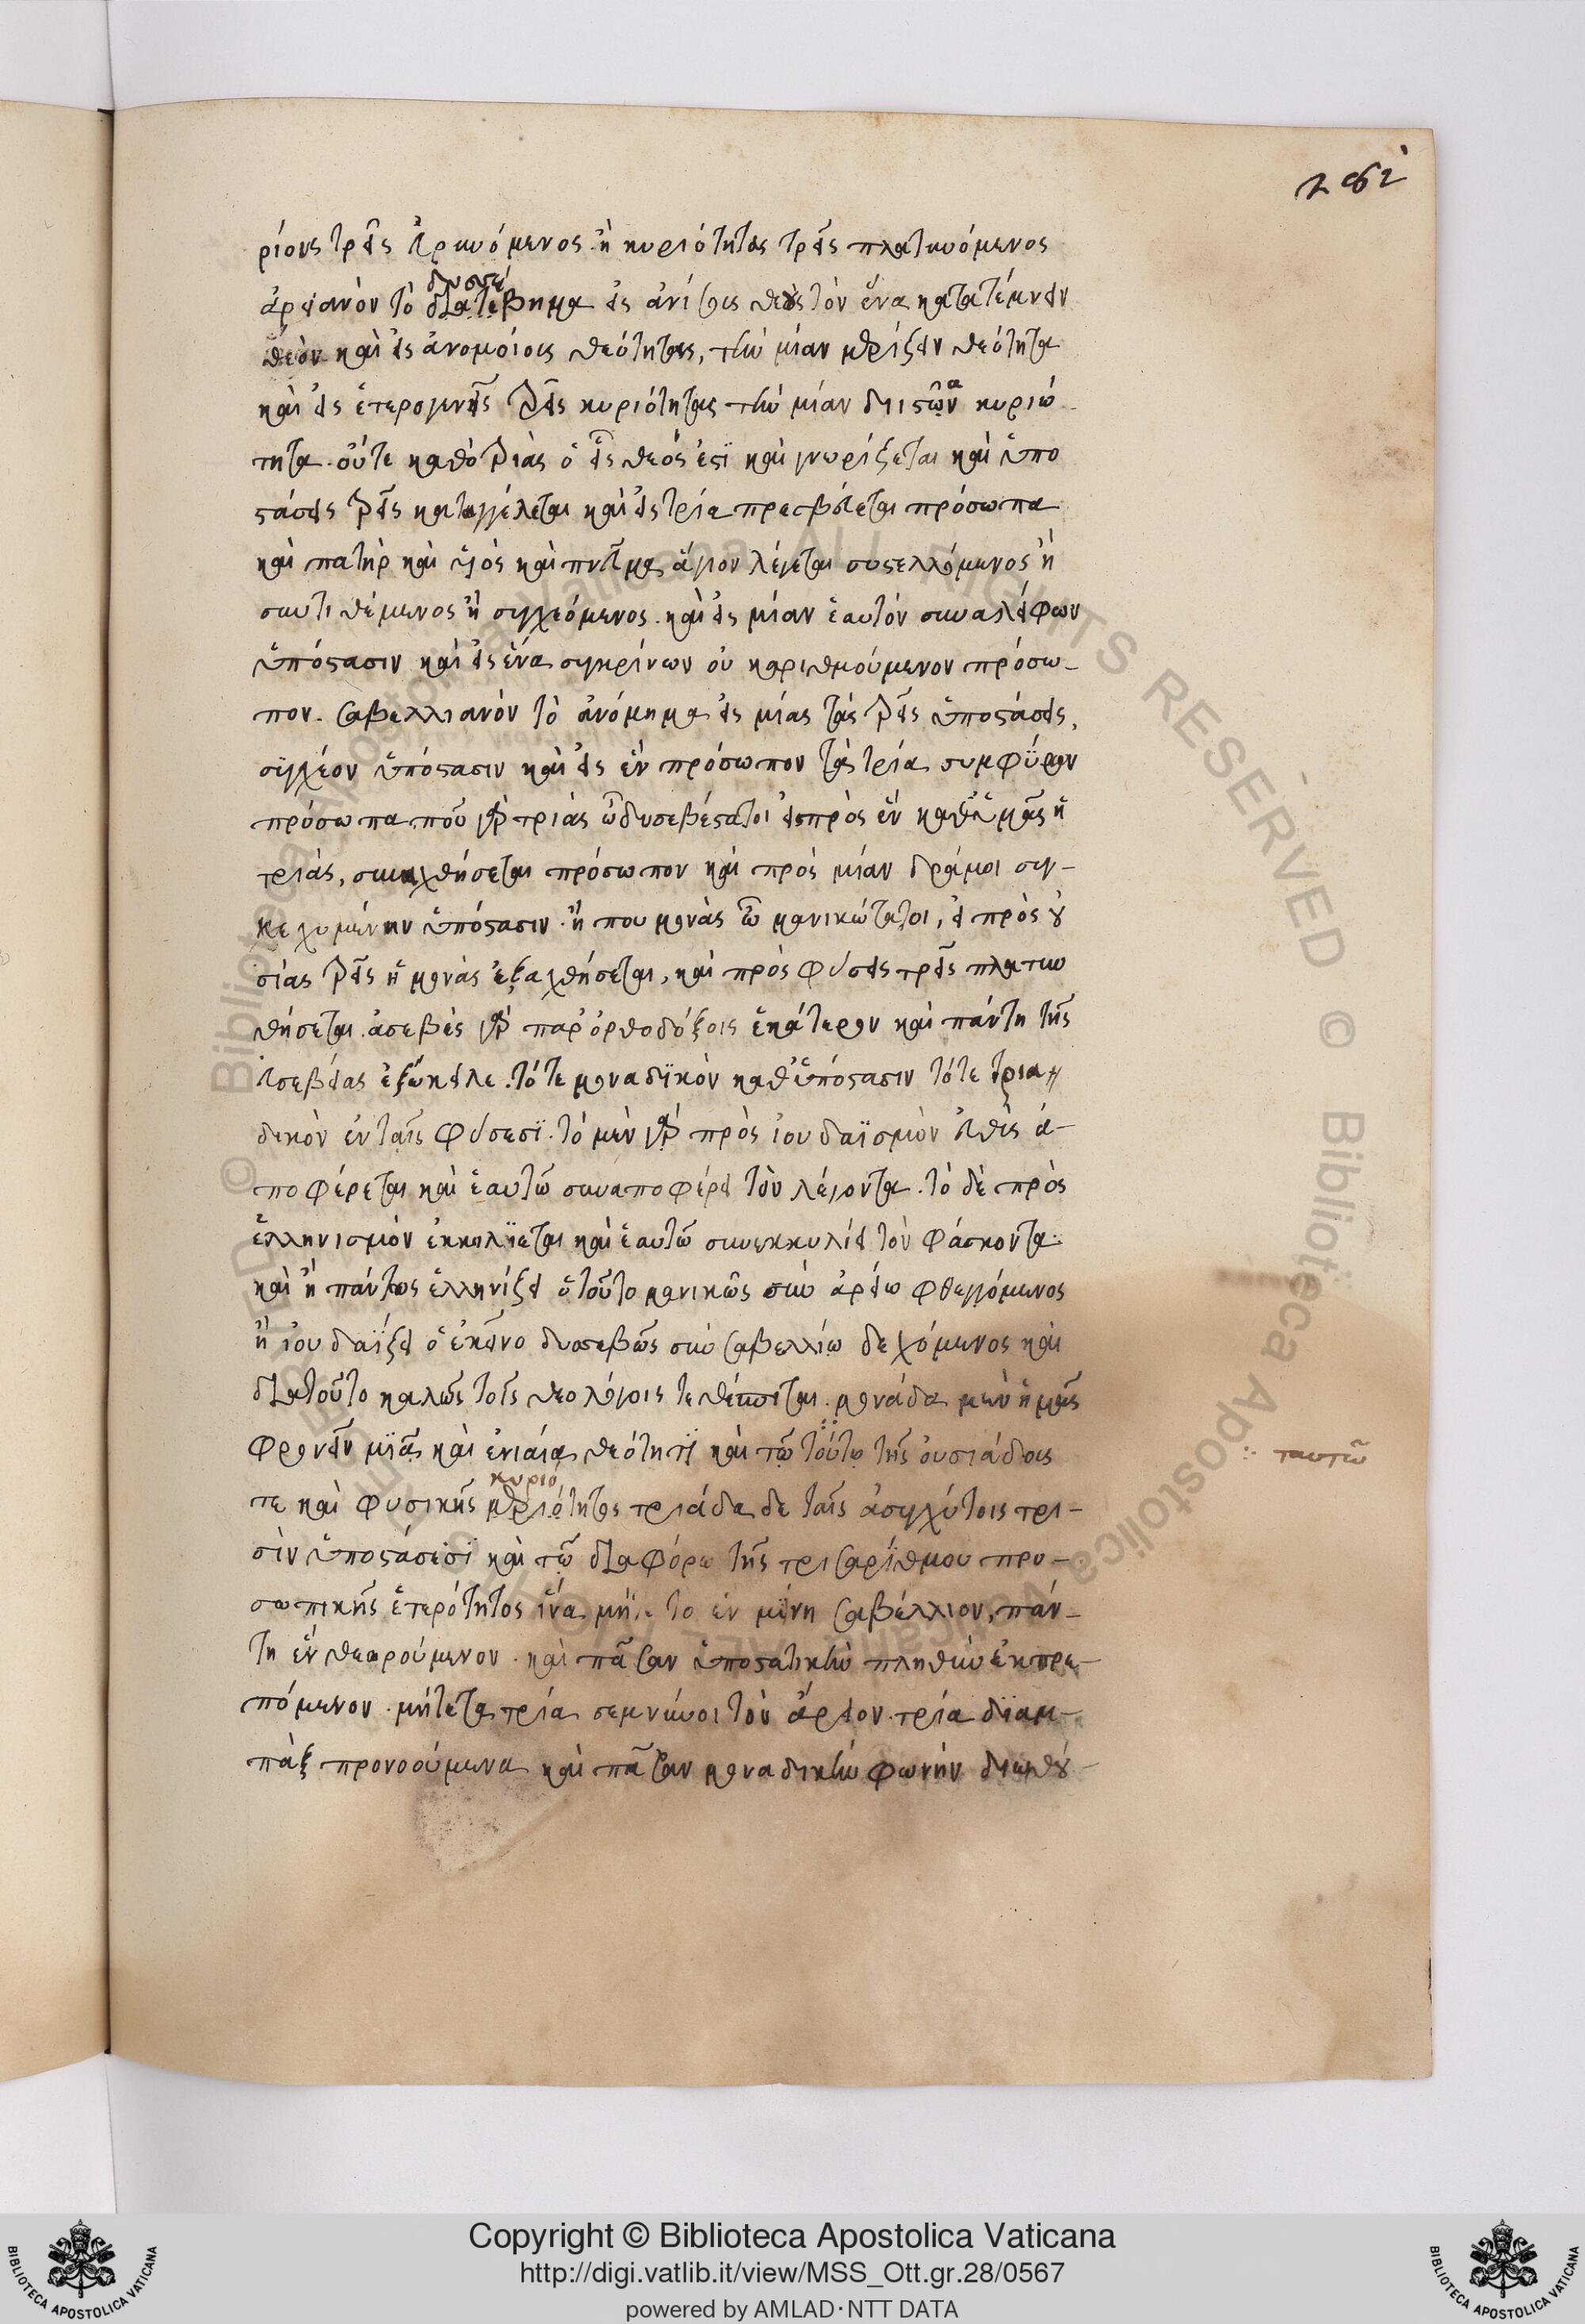 282
ρίους τρεῖς εὐρυνόμενος ἢ κυριότητας τρεῖς πλατυνόμενος
δυσσέ
ἀρειανὸν τὸ διατέβημα εἰς ἀνίσους θεοὺς τὸν ἕνα κατατέμνειν
θεὸν καὶ εἰς ἀνομοίοις θεότητας, τὴν μίαν μερίζειν θεότητα
καὶ εἰς ἑτερογενεῖς τρεῖς κυριότητας τὴν μίαν διιστῶν κυριό
τητα. οὔτε καθὸ τριὰς ὁ εἷς θεός ἐστὶ καὶ γνωρίζεται καὶ ὑπο
στάσεις τρεῖς καταγγέλεται καὶ εἰς τρία πρεσβεύεται πρόσωπα
καὶ πατὴρ καὶ υἱὸς καὶ πνεῦμα ἅγιον λέγεται συστελλόμενος ἢ
συντιθέμενος ἢ συγχεόμενος. καὶ εἰς μίαν ἑαυτὸν συναλείφων
ὑπόστασιν καὶ εἰς ἕνα συγκρίνων οὐ καριθμούμενον πρόσω-
πον. σαβελλιανὸν τὸ ἀνόμημα εἰς μίας τὰς τρεῖς ὑποστάσεις,
συγχέον ὑπόστασιν καὶ εἰς ἓν πρόσωπον τὰ τρία συμφύρον
πρόσωπα. ποῦ γὰρ τριὰς ὦ δυσεβέστατοι εἰ πρὸς ἓν καθ' ἡμᾶς ἡ
τριὰς, συναχθήσεται πρόσωπον καὶ πρὸς μίαν δράμοι συγ-
κεχυμένην ὑπόστασιν. ἢ που μονὰς ὦ μανικώτατοι, εἰ πρὸς οὐ
σίας τρεῖς ἡ μονὰς ἐξαχθήσεται, καὶ πρὸς φύσεις τρεῖς πλατυν
θήσεται. ἀσεβὲς γὰρ παρ' ὀρθοδόξοις ἑκάτερον καὶ πάντη τῆς
εὐσεβείας ἐξώκειλε. τό τε μοναδικὸν καθ' ὑπόστασιν τό τε τρια
δικὸν ἐν ταῖς φύσεσι. τὸ μὲν γὰρ πρὸς ἰουδαϊσμὸν εὐθὺς ἀ-
ποφέρεται καὶ ἑαυτῶ συναποφέρει τὸν λέγοντα. τὸ δὲ πρὸς
ἑλληνισμὸν ἐκκυλίεται καὶ ἑαυτῶ συνεκκυλίει τὸν φάσκοντα.
καὶ ἢ πάντως ἑλληνίζει ὁ τοῦτο μανικῶς σὺν ἀρείω φθεγγόμενος
ἢ ἰουδαΐζει ὁ ἐκεῖνο δυσεβῶς σὺν σαβελλίω δεχόμενος καὶ
διατοῦτο καλῶς τοῖς θεολόγοις τεθέσπισται. μονάδα μὲν ἡμᾶς
φρονεῖν μιᾶ καὶ ἑνιαία θεότητι καὶ τῶ τούτω τῆς οὐσιώδους
∴ ταυτῶ
κυριο
τε καὶ φυσικῆς μεριότητος τριάδα δε ταῖς ἀσυγχύτοις τρι-
σὶν ὑποστάσεσι καὶ τῶ διαφόρω τῆς τρισαρίθμου προ-
σωπικῆς ἑτερότητος ἵνα μήτε το ἓν μένη σαβέλλιον, πάν-
τη ἓν θεωρούμενον. καὶ πᾶσαν ὑποστατικὴν πληθὺν ἐκτρε-
πόμενον. μήτε τα τρία σεμνύνοι τὸν ἄρειον. τρία διαμ-
πὰξ προνοούμενα καὶ πᾶσαν μοναδικὴν φωνὴν διωθού-
Copyright © Biblioteca Apostolica Vaticana
http://digi.vatlib.it/view/MSS_Ott.gr.28/0567
powered by AMLAD·NTT DATA